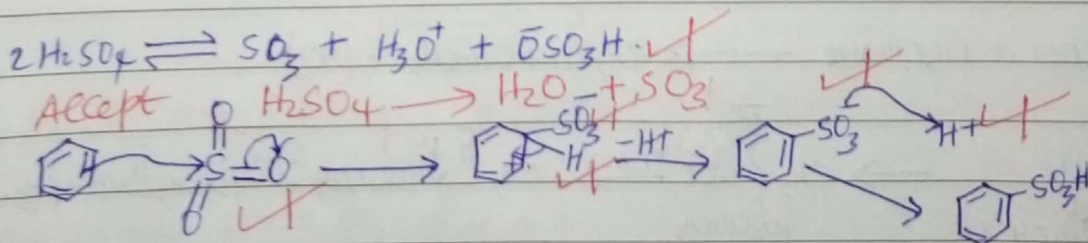 2H₂SO₄ ⇌ SO₃ + H₃O⁺ + ŌSO₃H.
Accept H₂SO₄ → H₂O + SO₃
O S=O O → SO₃⁻ H + -H+ → SO₃⁻ H+
SO₃H